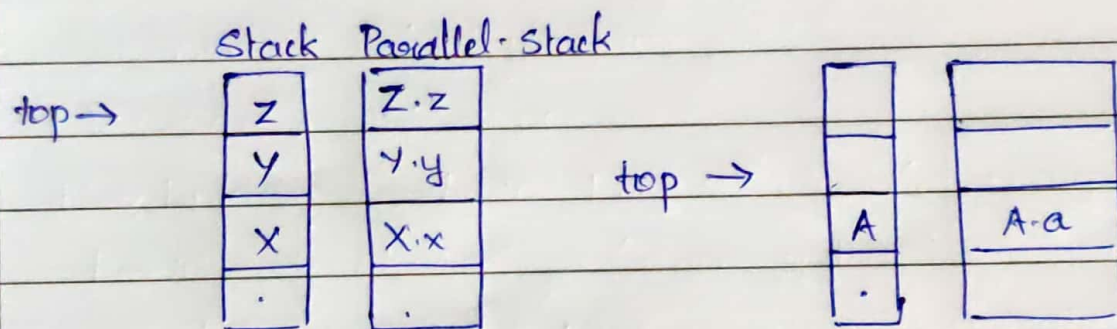 Stack Parallel. Stack
top→ Z Z.z
Y Y.y top →
X X.x A A.a
. . .